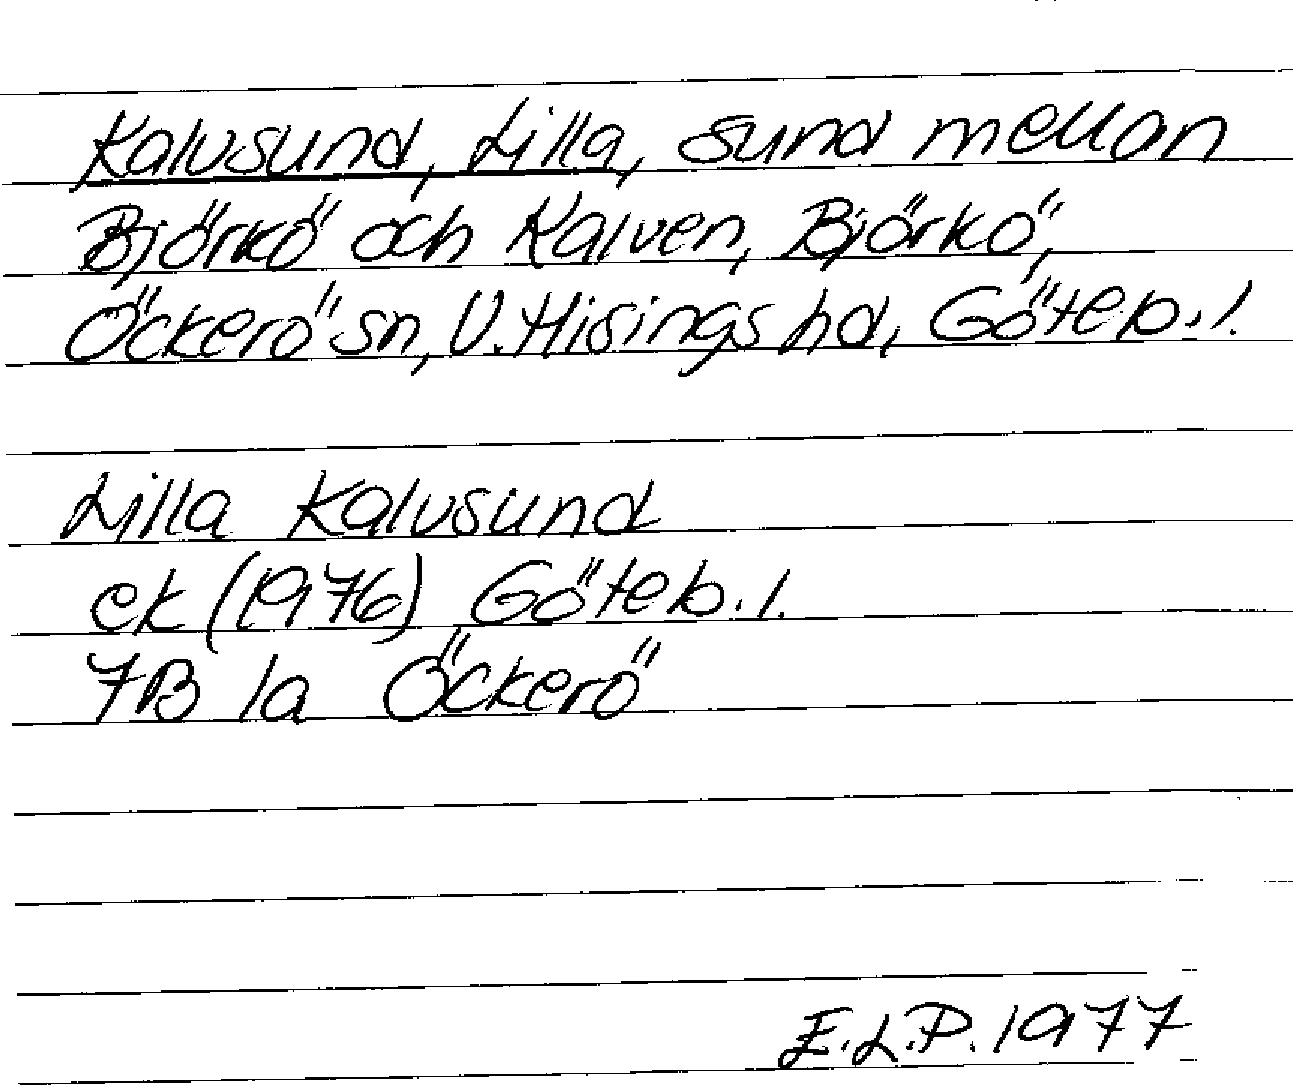 Kalvsund, Lilla, sund mellan
Björkö och Kalven, Björkö,
Öckerö sn, V. Hisings hd, Göteb. l.
Lilla Kalvsund
ek (1976) Göteb. l.
7B 1a Öckerö
E.L.P. 1977